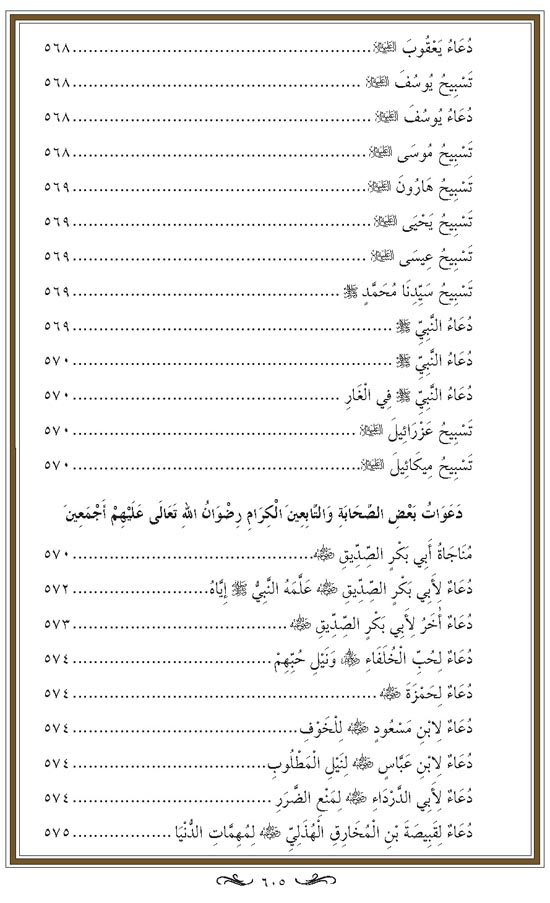 دُعَاءُ يَعْقُوبَ عَلَيْهِ السَّلَامُ................................................٥٦٨
تَسْبِيحُ يُوسُفَ عَلَيْهِ السَّلَامُ ................................................٥٦٨
دُعَاءُ يُوسُفَ عَلَيْهِ السَّلَامُ................................................٥٦٨
تَسْبِيحُ مُوسَى عَلَيْهِ السَّلَامُ................................................٥٦٨
تَسْبِيحُ هَارُونَ عَلَيْهِ السَّلَامُ................................................٥٦٩
تَسْبِيحُ يَحْيَى عَلَيْهِ السَّلَامُ................................................٥٦٩
تَسْبِيحُ عِيسَى عَلَيْهِ السَّلَامُ ................................................٥٦٩
تَسْبِيحُ سَيِّدِنَا مُحَمَّدٍ ﷺ ................................................٥٦٩
دُعَاءُ النَّبِيِّ ﷺ ................................................٥٦٩
دُعَاءُ النَّبِيِّ ﷺ ................................................٥٧٠
دُعَاءُ النَّبِيِّ ﷺ فِي الْغَارِ ................................................٥٧٠
تَسْبِيحُ عَزْرَائِيلَ عَلَيْهِ السَّلَامُ ................................................٥٧٠
تَسْبِيحُ مِيكَائِيلَ عَلَيْهِ السَّلَامُ................................................٥٧٠
دَعَوَاتُ بَعْضِ الصَّحَابَةِ وَالتَّابِعِينَ الْكِرَامِ رِضْوَانُ اللهِ تَعَالَى عَلَيْهِمْ أَجْمَعِينَ
مُنَاجَاةُ أَبِي بَكْرٍ الصِّدِّيقِ رَضِيَ اللهُ عَنْهُ................................................٥٧٠
دُعَاءٌ لِأَبِي بَكْرٍ الصِّدِّيقِ رَضِيَ اللهُ عَنْهُ عَلَّمَهُ النَّبِيُّ ﷺ إِيَّاهُ........................٥٧٢
دُعَاءٌ أُخَرُ لِأَبِي بَكْرٍ الصِّدِّيقِ رَضِيَ اللهُ عَنْهُ................................................٥٧٣
دُعَاءٌ لِحُبِّ الْخُلَفَاءِ رَضِيَ اللهُ عَنْهُمْ وَنَيْلِ حُبِّهِمْ................................٥٧٤
دُعَاءٌ لِحَمْزَةَ رَضِيَ اللهُ عَنْهُ ................................................٥٧٤
دُعَاءٌ لِابْنِ مَسْعُودٍ رَضِيَ اللهُ عَنْهُ لِلْخَوْفِ................................٥٧٤
دُعَاءٌ لِابْنِ عَبَّاسٍ رَضِيَ اللهُ عَنْهُ لِنَيْلِ الْمَطْلُوبِ................................٥٧٤
دُعَاءٌ لِأَبِي الدَّرْدَاءِ رَضِيَ اللهُ عَنْهُ لِمَنْعِ الضَّرَرِ ................................٥٧٤
دُعَاءٌ لِقَبِيصَةَ بْنِ الْمُخَارِقِ الْهُذَلِيِّ رَضِيَ اللهُ عَنْهُ لِمُهِمَّاتِ الدُّنْيَا ................٥٧٥
٦٠٥